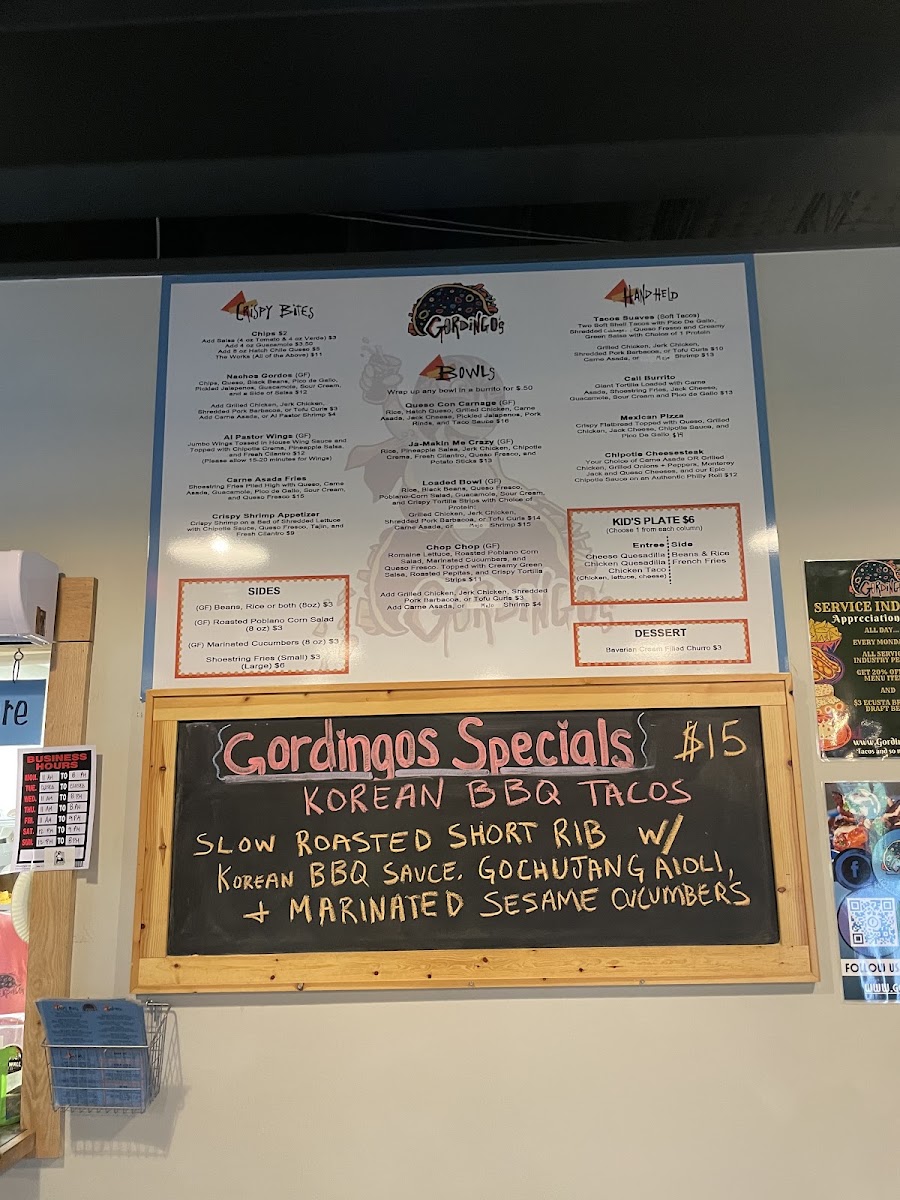 CRISPY BITES
Chips $2
Add Salsa (4 oz Tomato & 4 oz Verde) $3
Add 4 oz Guacamole $3.50
Add 8 oz Hatch Chile Queso $5
The Works (All of the Above) $11
Nachos Gordos (GF)
Chips, Queso, Black Beans, Pico de Gallo,
Pickled Jalapenos, Guacamole, Sour Cream,
and a Side of Salsa $12
Add Grilled Chicken, Jerk Chicken,
Shredded Pork Barbacoa, or Tofu Curls $3
Add Carne Asada, or Al Pastor Shrimp $4
Al Pastor Wings (GF)
Jumbo Wings Tossed in House Wing Sauce and
Topped with Chipotle Crema, Pineapple Salsa,
and Fresh Cilantro $12
(Please allow 15-20 minutes for Wings)
Carne Asada Fries
Shoestring Fries Piled High with Queso, Carne
Asada, Guacamole, Pico de Gallo, Sour Cream,
and Queso Fresco $15
Crispy Shrimp Appetizer
Crispy Shrimp on a Bed of Shredded Lettuce
with Chipotle Sauce, Queso Fresco, Tajin, and
Fresh Cilantro $9
SIDES
(GF) Beans, Rice or both (8oz) $3
(GF) Roasted Poblano Corn Salad
(8 oz) $3
(GF) Marinated Cucumbers (8 oz) $3
Shoestring Fries (Small) $3
(Large) $6
GORDINGOS
BOWLS
Wrap up any bowl in a burrito for $.50
Queso Con Carnage (GF)
Rice, Hatch Queso, Grilled Chicken, Carne
Asada, Jack Cheese, Pickled Jalapenos, Pork
Rinds, and Taco Sauce $16
Ja-Makin Me Crazy (GF)
Rice, Pineapple Salsa, Jerk Chicken, Chipotle
Crema, Fresh Cilantro, Queso Fresco, and
Potato Sticks $13
Loaded Bowl (GF)
Rice, Black Beans, Queso Fresco,
Poblano-Corn Salad, Guacamole, Sour Cream,
and Crispy Tortilla Strips with Choice of
Protein:
Grilled Chicken, Jerk Chicken,
Shredded Pork Barbacoa, or Tofu Curls $14
Carne Asada, or Shrimp $15
Chop Chop (GF)
Romaine Lettuce, Roasted Poblano Corn
Salad, Marinated Cucumbers, and
Queso Fresco. Topped with Creamy Green
Salsa, Roasted Pepitas, and Crispy Tortilla
Strips $11
Add Grilled Chicken, Jerk Chicken, Shredded
Pork Barbacoa, or Tofu Curls $3
Add Carne Asada, or Shrimp $4
GORDINGOS
HANDHELD
Tacos Suaves (Soft Tacos)
Two Soft Shell Tacos with Pico De Gallo,
Shredded Cabbage, Queso Fresco and Creamy
Green Salsa with Choice of 1 Protein
Grilled Chicken, Jerk Chicken,
Shredded Pork Barbacoa, or Tofu Curls $10
Carne Asada, or Shrimp $13
Cali Burrito
Giant Tortilla Loaded with Carne
Asada, Shoestring Fries, Jack Cheese,
Guacamole, Sour Cream and Pico de Gallo $13
Mexican Pizza
Crispy Flatbread Topped with Queso, Grilled
Chicken, Jack Cheese, Chipotle Sauce, and
Pico De Gallo $14
Chipotle Cheesesteak
Your Choice of Carne Asada OR Grilled
Chicken, Grilled Onions + Peppers, Monterey
Jack and Queso Cheeses, and our Epic
Chipotle Sauce on an Authentic Philly Roll $12
KID'S PLATE $6
(Choose 1 from each column)
Entree Side
Cheese Quesadilla Beans & Rice
Chicken Quesadilla French Fries
Chicken Taco
(Chicken, lettuce, cheese)
DESSERT
Bavarian Cream Filled Churro $3
Gordingos Specials $15
KOREAN BBQ TACOS
SLOW ROASTED SHORT RIB W/
KOREAN BBQ SAUCE. GOCHUJANG AIOLI,
+ MARINATED SESAME CUCUMBERS
re
BUSINESS
HOURS
MON. 11 AM TO 8 PM
TUE. CLOSED TO CLOSED
WED. 11 AM TO 8 PM
THU. 11 AM TO 8 PM
FRI. 11 AM TO 9 PM
SAT. 12 PM TO 9 PM
SUN. 12 PM TO 8 PM
SERVICE IND
Appreciation
ALL DAY...
EVERY MOND
ALL SERVIC
INDUSTRY PE
GET 20% OF
MENU ITE
AND
$3 ECUSTA BR
DRAFT BE
www.Gordin
Tacos and so m
FOLLOW US
WWW.G